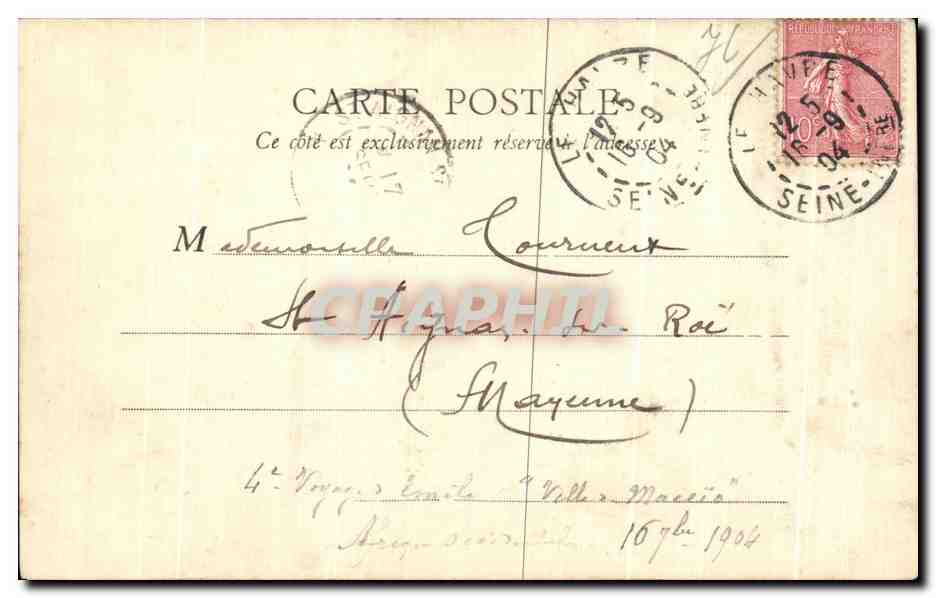 REPUBLIQUE FRANCAISE
LE HAVRE
12 5
16 -9
04
SEINE-INFRE
LE HAVRE
12 5
16 -9
04
SEINE-INFRE
17
CARTE POSTALE
Ce côté est exclusivement réservé à l'adresse
Mademoiselle Tourneux
St Aignan sur Roë
(Mayenne)
4e Voyage Emile "Ville de Maceïo"
Afrique occidentale 16 7bre 1904
CPAPHIL